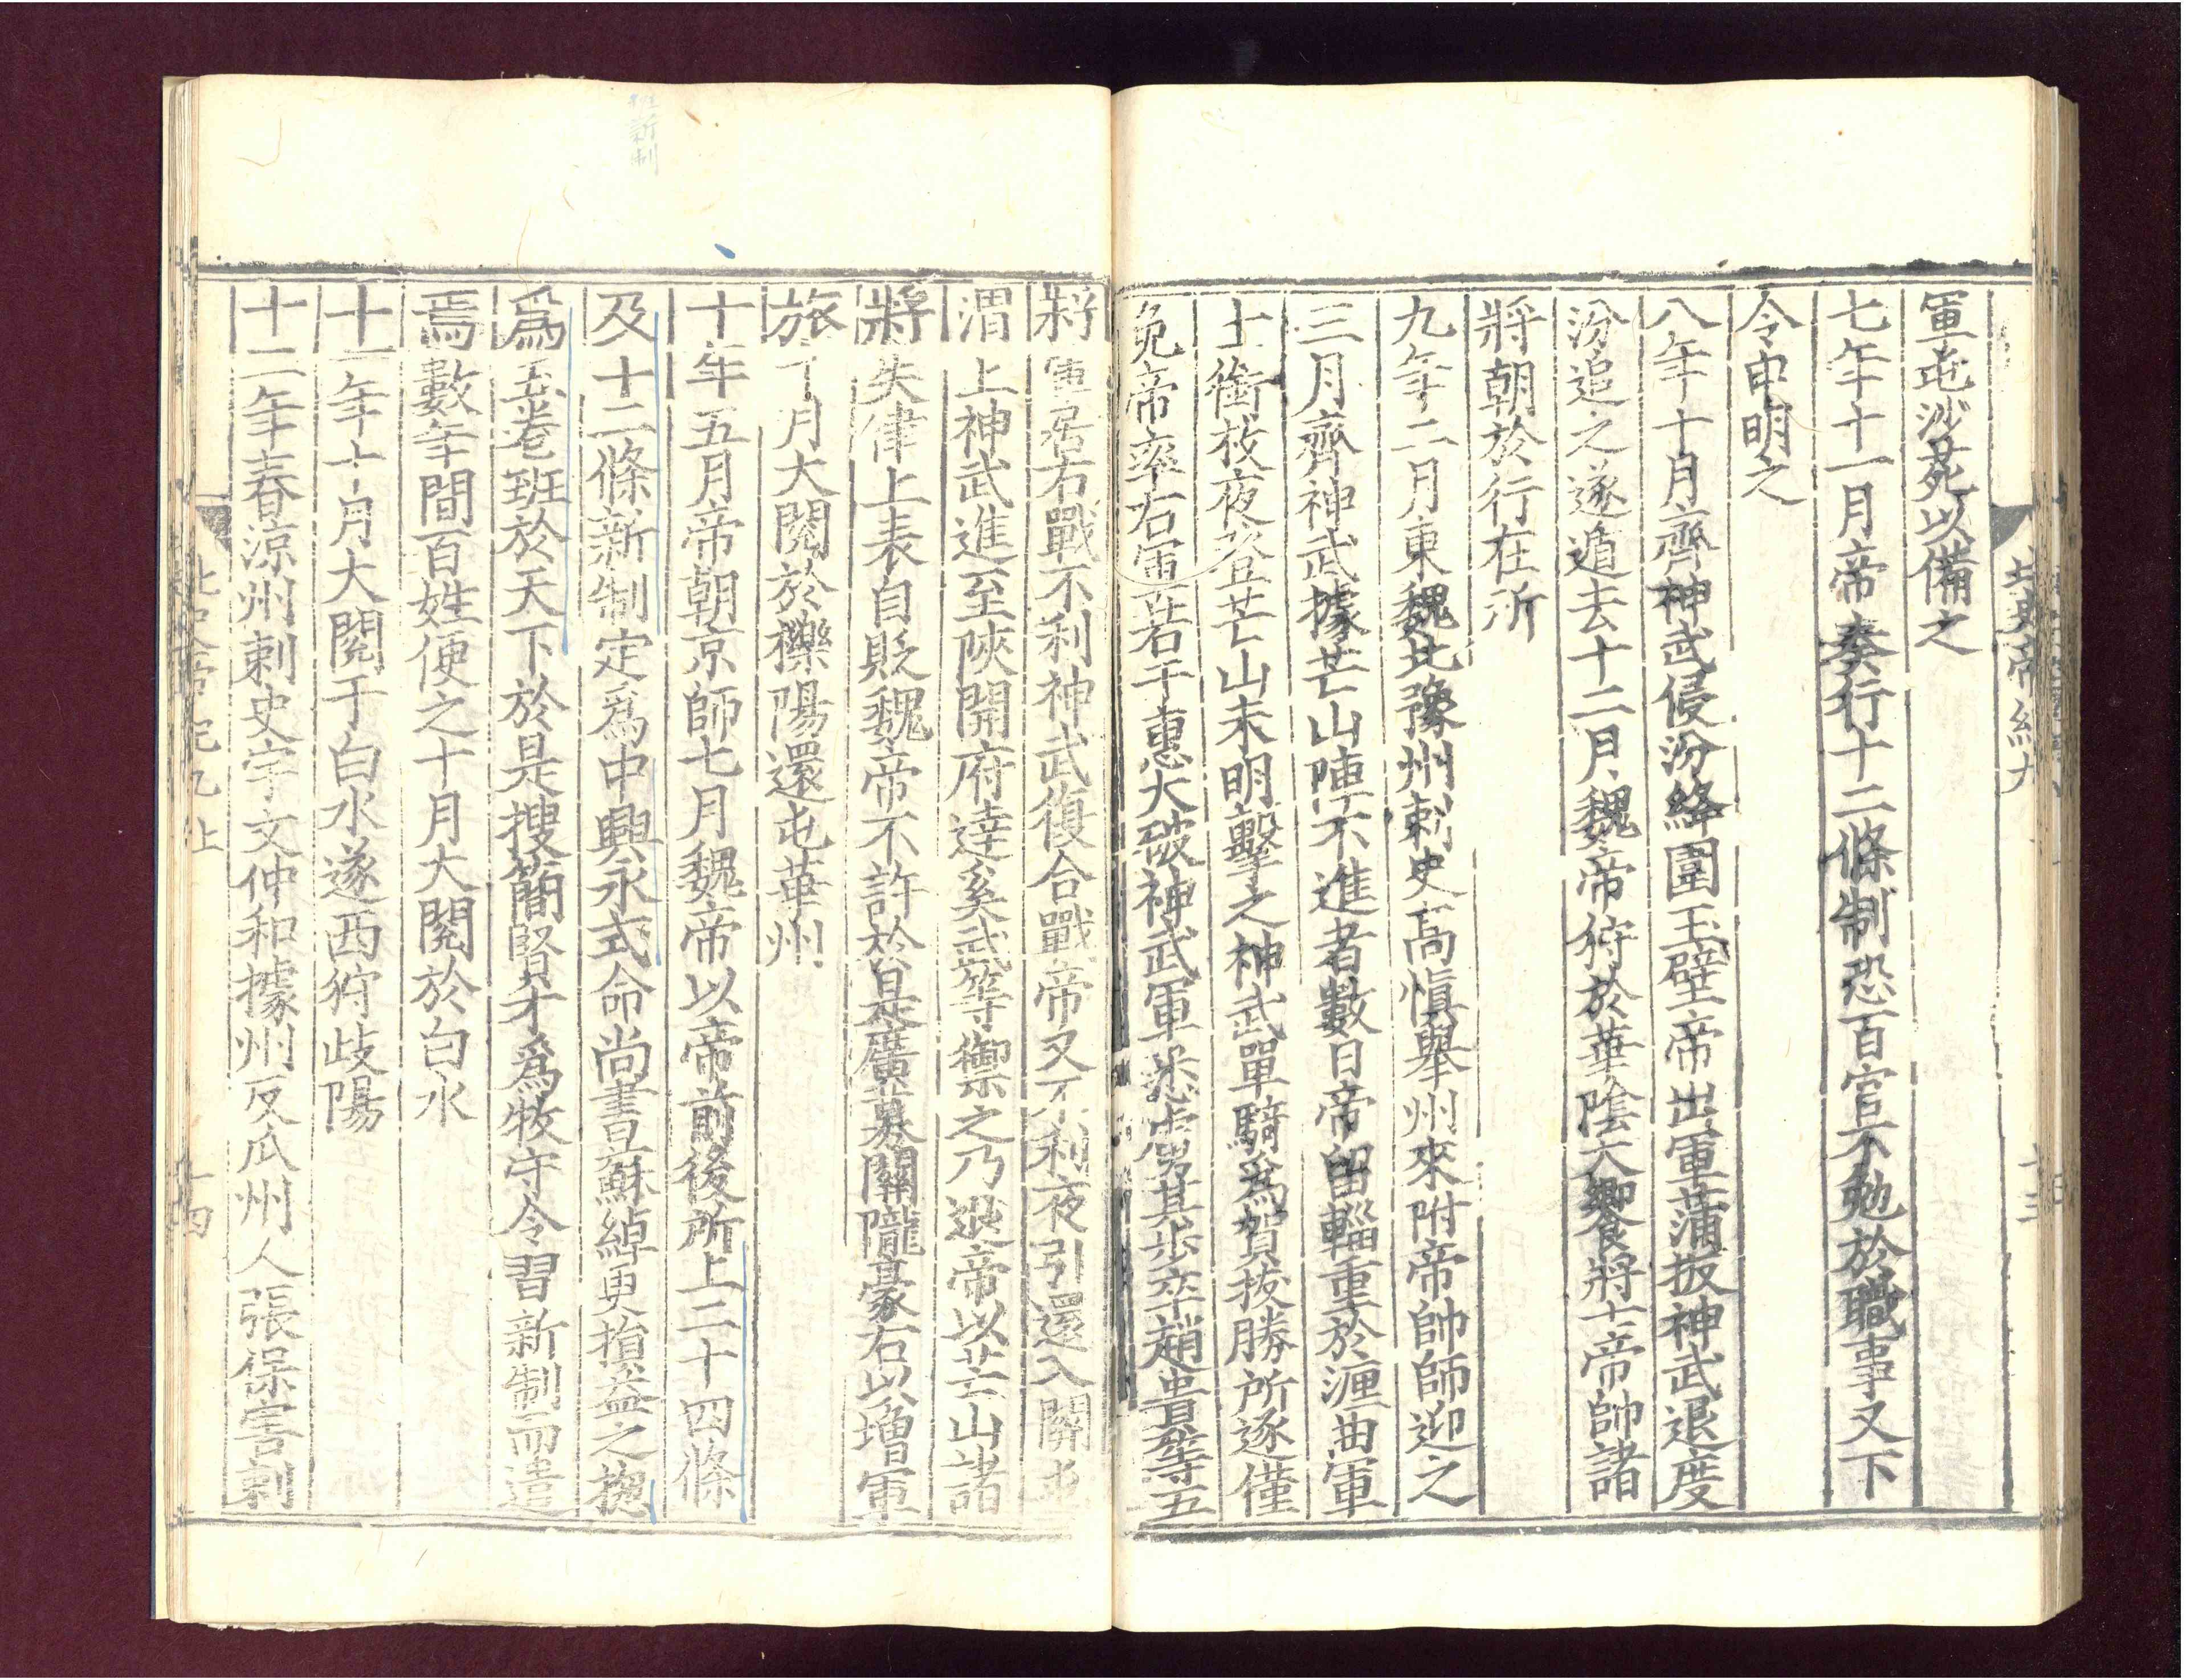 北史帝紀九
十三
軍屯沙苑以備之
七年十一月帝奏行十二條制恐百官不勉於職事又下
令申明之
八年十月齊神武侵汾絳圍玉壁帝出軍蒲坂神武退度
汾追之遂遁去十二月魏帝狩於華陰大饗將士帝帥諸
將朝於行在所
九年二月東魏北豫州刺史高慎舉州來附帝帥師迎之
三月齊神武據芒山陣不進者數日帝留輜重於瀍曲軍
士銜枚夜登芒山未明擊之神武單騎爲賀拔勝所逐僅
免帝率右軍若干惠大破神武軍悉虜其步卒趙貴等五
將軍居右戰不利神武復合戰帝又不利夜引還入關屯
渭上神武進至陝開府達奚武等禦之乃退帝以芒山諸
將失律上表自貶魏帝不許於是廣募關隴豪右以增軍
旅十月大閱於櫟陽還屯華州
十年五月帝朝京師七月魏帝以帝前後所上二十四條
及十二條新制定爲中興永式命尚書蘇綽更損益之揔
爲五卷班於天下於是搜簡賢才爲牧守令習新制而遣
焉數年間百姓便之十月大閱於白水
十一年十月大閱于白水遂西狩歧陽
十二年春涼州刺史宇文仲和據州反瓜州人張保害刺
北史帝紀九上
十四
新制